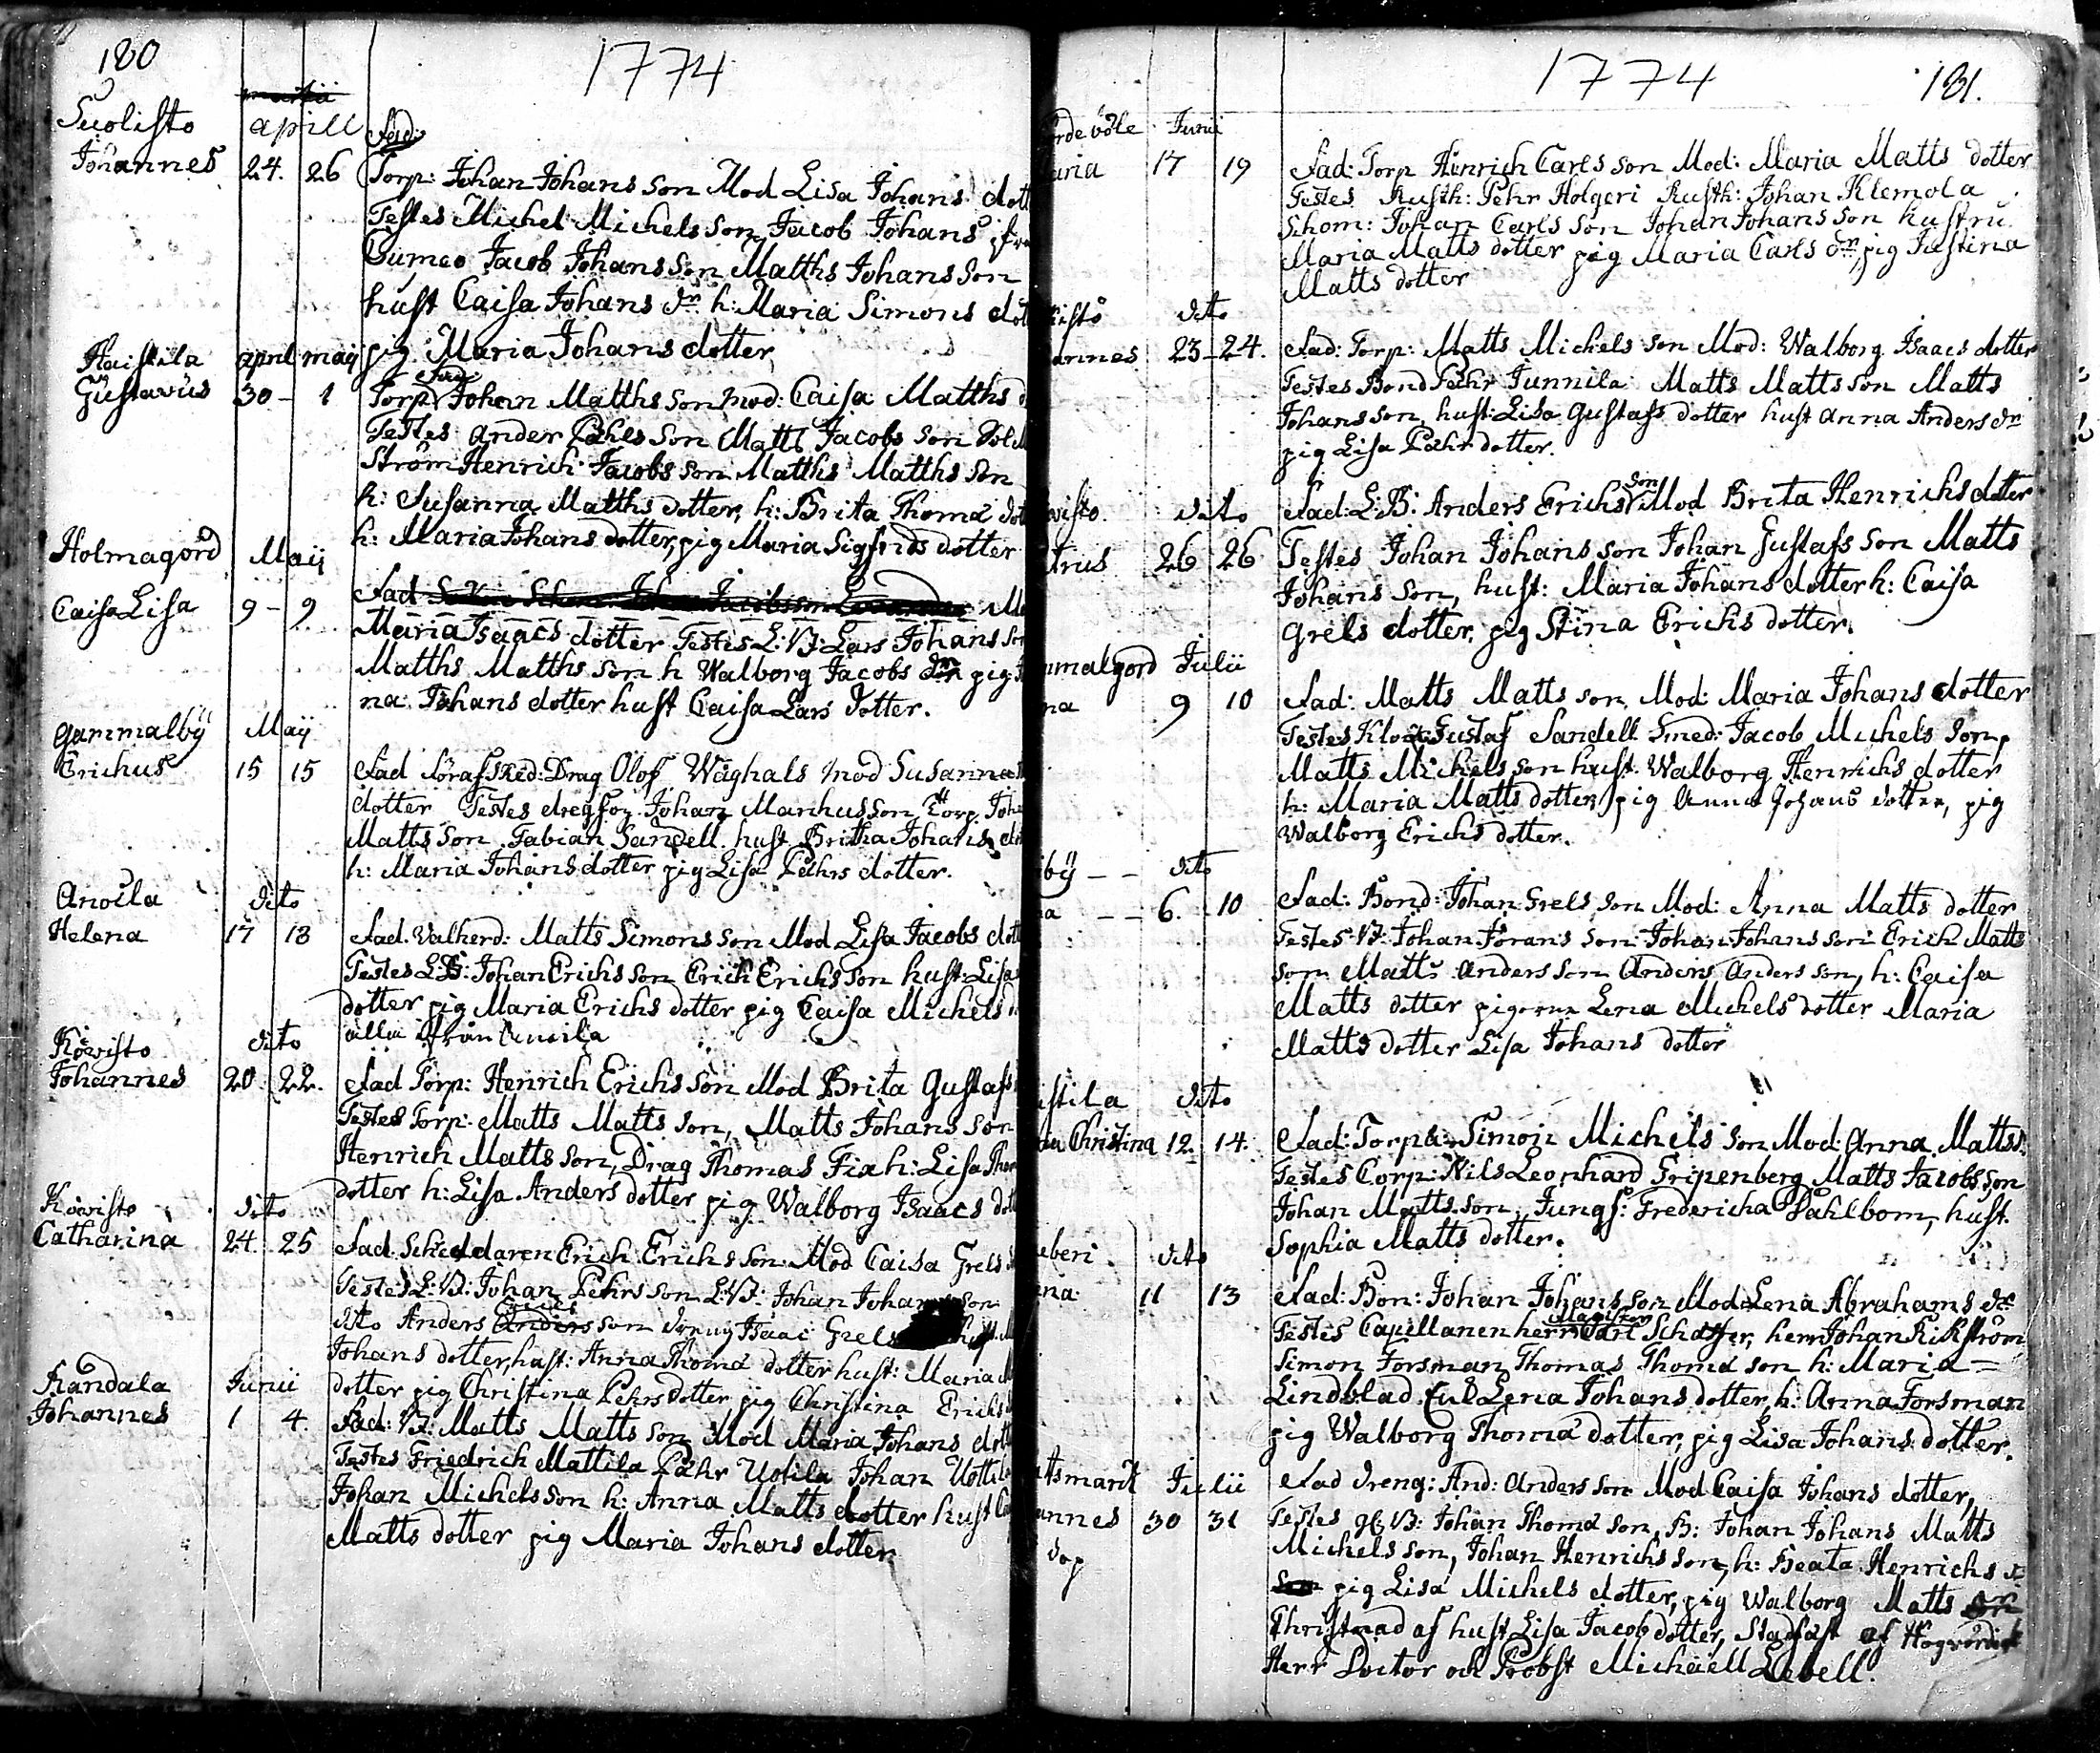 180
1774
Suolisto
apill
Fad:
Johannes 24. 26 Torp: Johan Johans son Mod Lisa Johans dott
Testes Michel Michels son Jacob Johans
Cumeo Jacob Johans son Matths Johans son
hust Caisa Johans dr h: Maria Simons dott
pig Maria Johans dotter
Haistila april maij
Fad
Gustavus 30 - 1 Torp Johan Matths son mod: Caisa Matths
Testes Ander Påhls son Matts Jacobs son
Ström Henrich Jacobs son Matths Matths son
h: Susanna Matths dotter, h: Brita Thoma dot
h: Maria Johans dotter, pig Maria Sigfrids dotter
Holmagord Maij
Caisa Lisa 9 - 9 Fad
Maria Isaacs dotter Testes L:B: Lars Johans son
Matths Matths son h Walborg Jacobs dr pig
na Johans dotter hust Caisa Lars dotter.
Gammalbÿ Maij
Erichus 15 15 Fad Drag Olof Wåghals mod Susanna
dotter Testes Johan Marhus son Torp. Joh
Matts son Fabian Sandell hust Britha Johans
h: Maria Johans dotter pig Lisa Påhrs dotter.
Anoila dito
Helena 17 18 Fad. Valherd: Matts Simons son Mod Lisa Jacobs dott
Testes L:B: Johan Erichs son Erich Erichs son hust: Lisa
dotter pig Maria Erichs dotter pig Caisa Michels
alla från Anoila
Köwisto dito
Johannes 20. 22. Fad Torp: Henrich Erichs son Mod Brita Gustafs
Testes Torp: Matts Matts son, Matts Johans son
Henrich Matts son, Drag Thomas Fix h: Lisa Thom
dotter h: Lisa Anders dotter pig Walborg Isaacs dot
Köwisto dito
Catharina 24. 25 Fad. Erich Erichs son Mod Caisa Grels
Testes L:B: Johan Pehrs son L:B: Johan Johans son
Erics
dito Anders Anders son dreng Isaac Grels
Johans dotter, hust: Anna Thoma dotter hust: Maria
dotter pig Christina Pehrs dotter, pig Christina Erichs
Randala Junii
Johannes 1 4. Fad: B: Matts Matts son Mod Maria Johans dott
Testes Friedrich Mattila Påhr Uotila Johan Uotila
Johan Michels son h: Anna Matts dotter hust
Matts dotter pig Maria Johans dotter
1774
181.
Junii
aria 17 19 Fad: Torp Henrich Carls son Mod: Maria Matts dotter
Testes Rusth: Pehr Holgeri Rusth: Johan Klemola
Schom: Johan Carls son Johan Johans son hustru
Maria Matts dotter pig Maria Carls dr, pig Justina
Matts dotter
isto dito
annes 23-24. Fad: Torp: Matts Michels son Mod: Walborg Isaacs dotter
Testes Bond Påhr Junnila Matts Matts son Matts
Johans son, hust: Lisa Gustafs dotter hust Anna Anders dr
pig Lisa Påhr dotter.
wisto. dito
son
Fad: L:B: Anders Erichs Mod Brita Henrichs dotter
trus 26 26 Testes Johan Johans son Johan Gustafs son Matts
Johans son, hust: Maria Johans dotter h: Caisa
Grels dotter, pig Stina Erichs dotter.
mmalgord Julii
na 9 10 Fad: Matts Matts son Mod: Maria Johans dotter
Testes Gustaf Sandell Smed: Jacob Michels son,
Matts Michels son hust. Walborg Henrichs dotter
h: Maria Matts dotter, pig Anna Johans dotter, pig
Walborg Erichs dotter.
bÿ - - dito
a - - 6. 10 Fad: Bond: Johan Grels son Mod: Anna Matts dotter
Testes B: Johan Jörans son Johan Johans son Erich Matts
son Matts Anders son Anders Anders son, h: Caisa
Matts dotter pigorna Lena Michels dotter Maria
Matts dotter Lisa Johans dotter
istila dito
Christina 12. 14. Fad: Torpa: Simon Michels son Mod: Anna Matts
Testes Corp: Nils Leonhard Gripenberg Matts Jacobs son
Johan Matts son, Jungf: Fredericha Pahlbom, hust.
Sophia Matts dotter.
eberi dito
na 11 13 Fad: Bon: Johan Johans son Mod Lena Abrahams dr
Magister
Testes Capellanen herr Carl Schäffer, herr Johan Kikström
Simon Forsman Thomas Thoma son h: Maria =
Lindblad Lena Johans dotter, h: Anna Forsman
pig Walborg Thoma dotter, pig Lisa Johans dotter.
tsmark Julii Fad dreng: And: Anders son Mod Caisa Johans dotter,
annes 30 31 Testes B: Johan Thoma son, B: Johan Johans Matts
Michels son, Johan Henrichs son, h: Beata Henrichs dr
döp
pig Lisa Michels dotter, pig Walborg Matts dr
Christnad af hust Lisa Jacob dotter, Stadfäst af Högwördige
Herr Doctor och Probst Michaell Lebell.